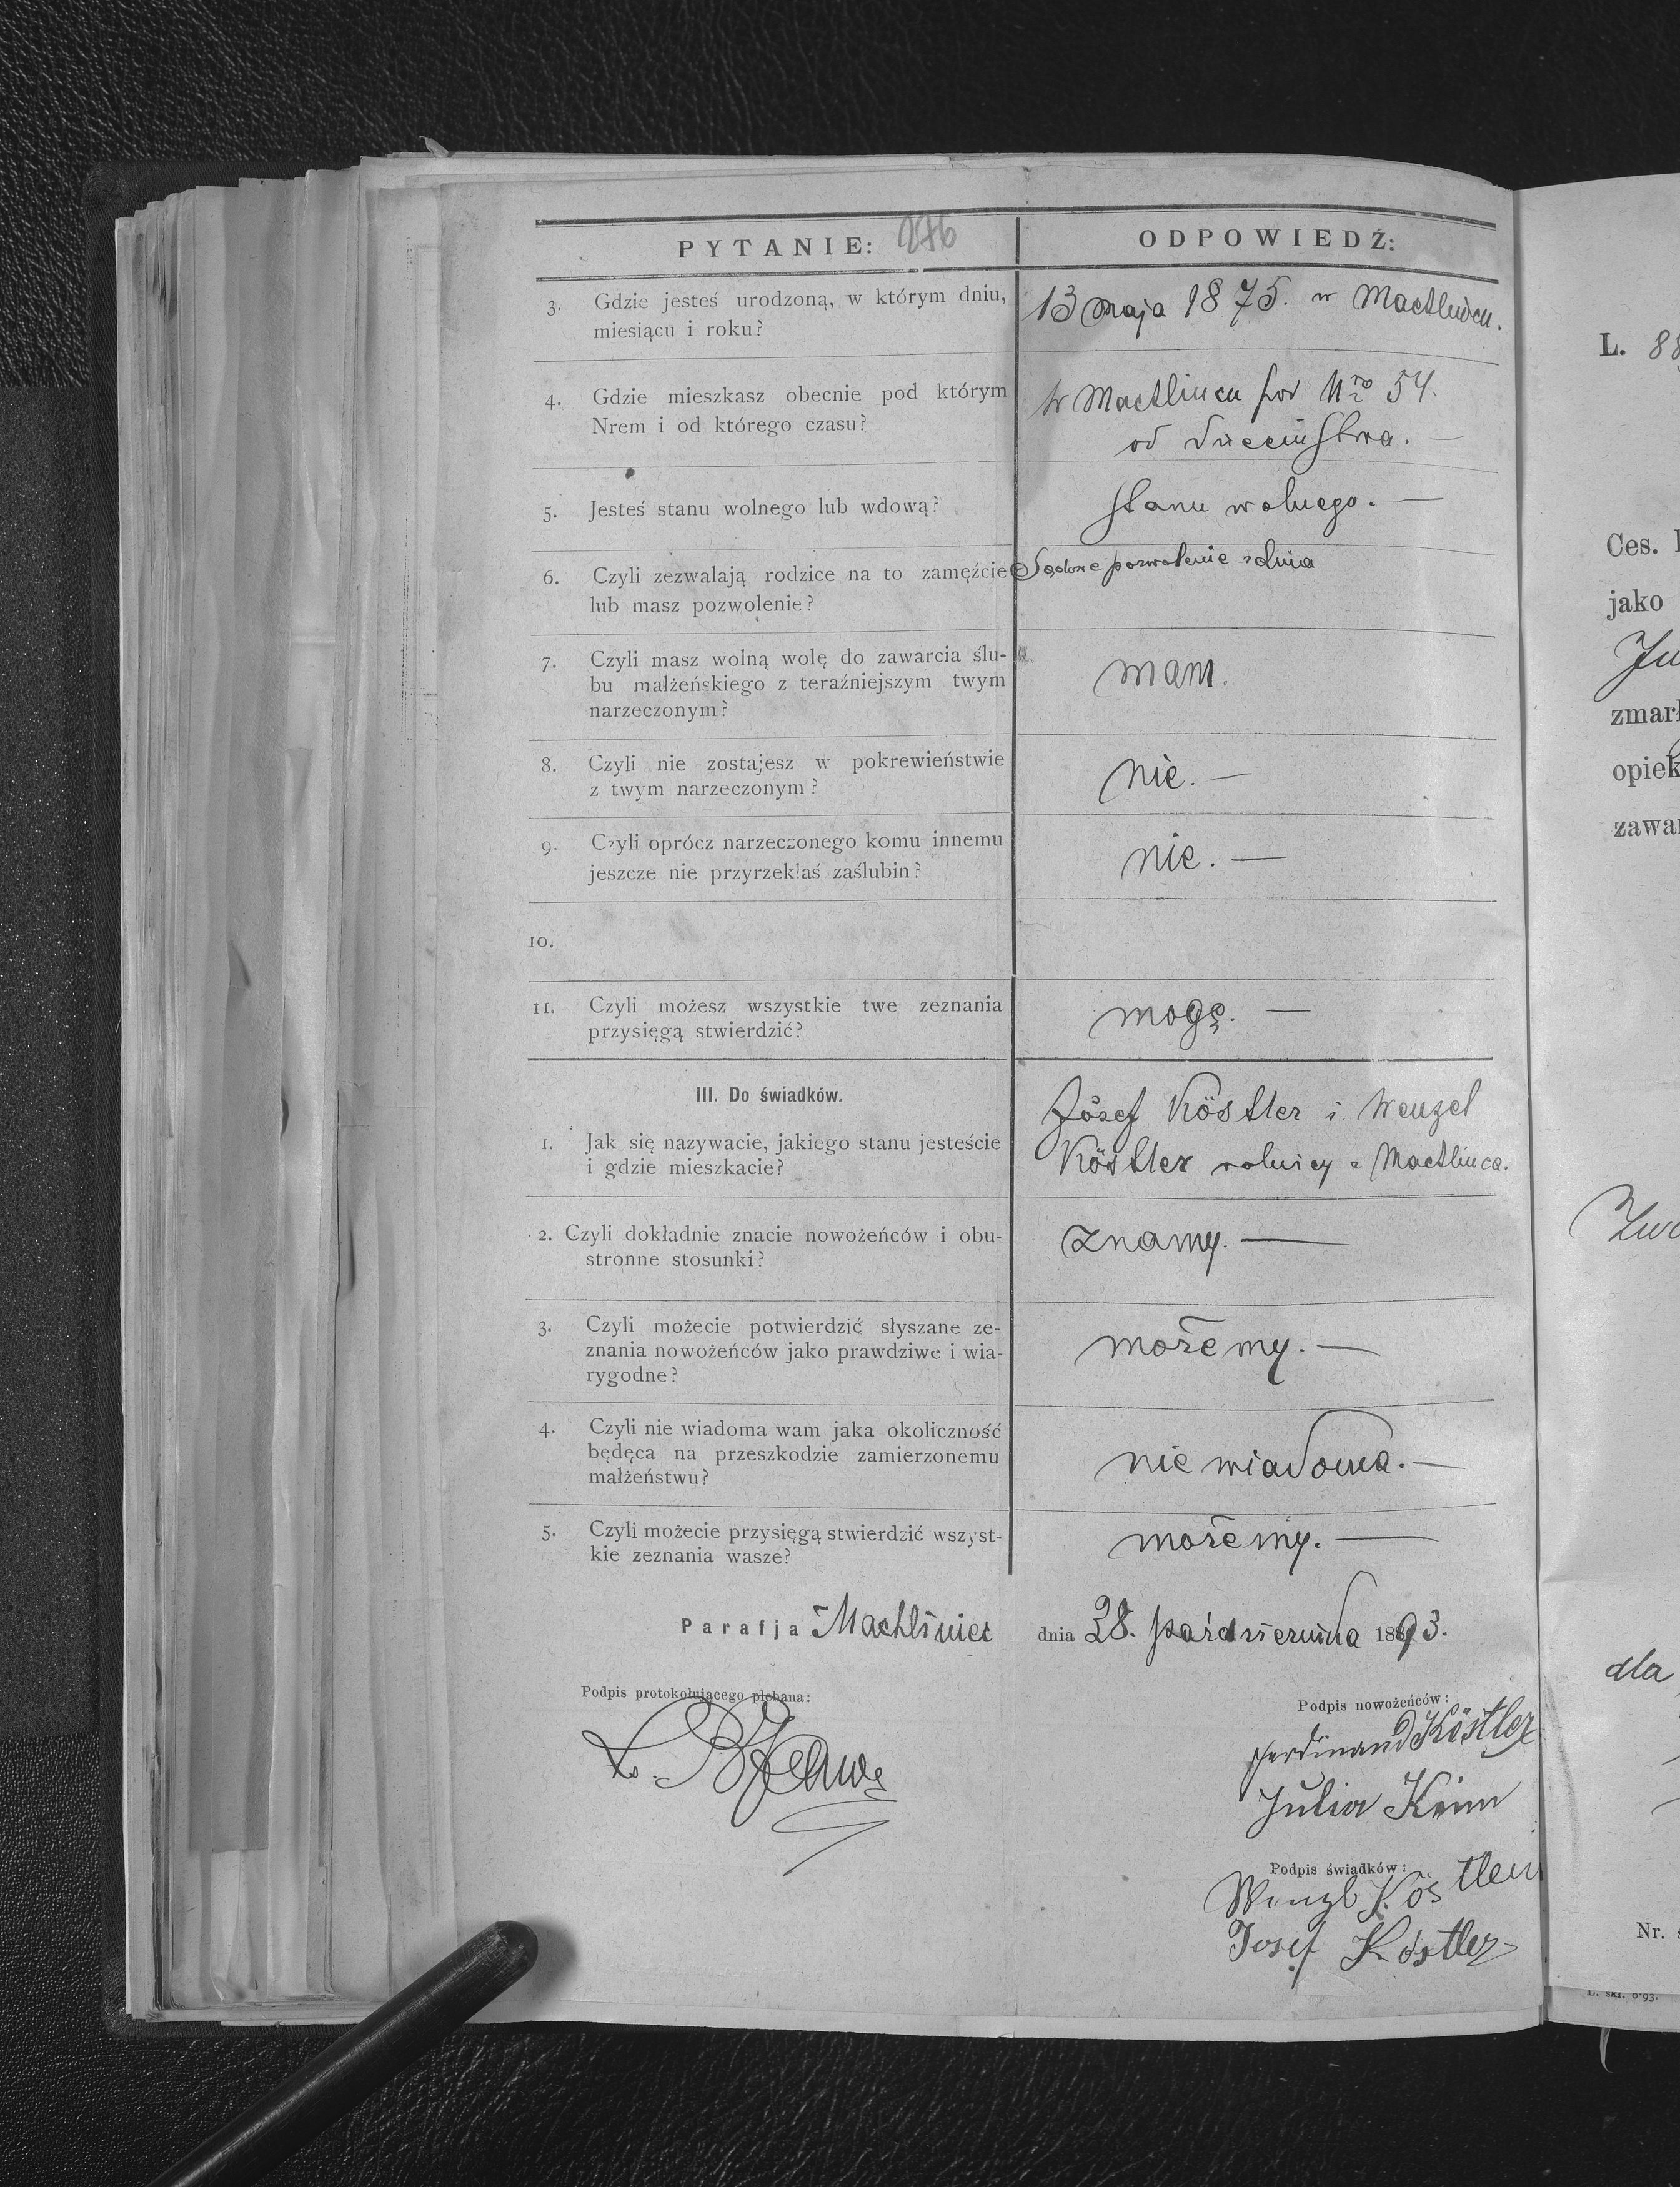 276
PYTANIE: ODPOWIEDŹ:
3. Gdzie jesteś urodzoną, w którym dniu,
miesiącu i roku?
13 maja 1875. w Machlińcu.
4. Gdzie mieszkasz obecnie pod którym
Nrem i od którego czasu?
w Machlińcu pod Nro 54.
od dzieciństwa. —
5. Jesteś stanu wolnego lub wdową?
stanu wolnego. —
6. Czyli zezwalają rodzice na to zamęźcie
lub masz pozwolenie?
Sądowe pozwolenie z dnia
7. Czyli masz wolną wolę do zawarcia ślu-
bu małżeńskiego z teraźniejszym twym
narzeczonym?
mam.
8. Czyli nie zostajesz w pokrewieństwie
z twym narzeczonym?
nie. —
9. Czyli oprócz narzeczonego komu innemu
jeszcze nie przyrzekłaś zaślubin?
nie. —
10.
11. Czyli możesz wszystkie twe zeznania
przysięgą stwierdzić?
mogę. —
III. Do świadków.
1. Jak się nazywacie, jakiego stanu jesteście
i gdzie mieszkacie?
Józef Köstler i Wenzel
Köstler rolnicy z Machlińca.
2. Czyli dokładnie znacie nowożeńców i obu-
stronne stosunki?
znamy. —
3. Czyli możecie potwierdzić słyszane ze-
znania nowożeńców jako prawdziwe i wia-
rygodne?
możemy. —
4. Czyli nie wiadoma wam jaka okoliczność
będęca na przeszkodzie zamierzonemu
małżeństwu?
nie wiadoma. —
5. Czyli możecie przysięgą stwierdzić wszyst-
kie zeznania wasze?
możemy. —
Parafja Machliniec dnia 28. października 1893.
Podpis protokołującego plebana:
Podpis nowożeńców:
Ferdinand Köstler
Julia Keim
Podpis świadków:
Wenzl Köstler
Josef Köstler
L. 88
Ces.
jako
Ju
zmar
opiek
zawa
dla
Nr.
L. skł. 6·93.